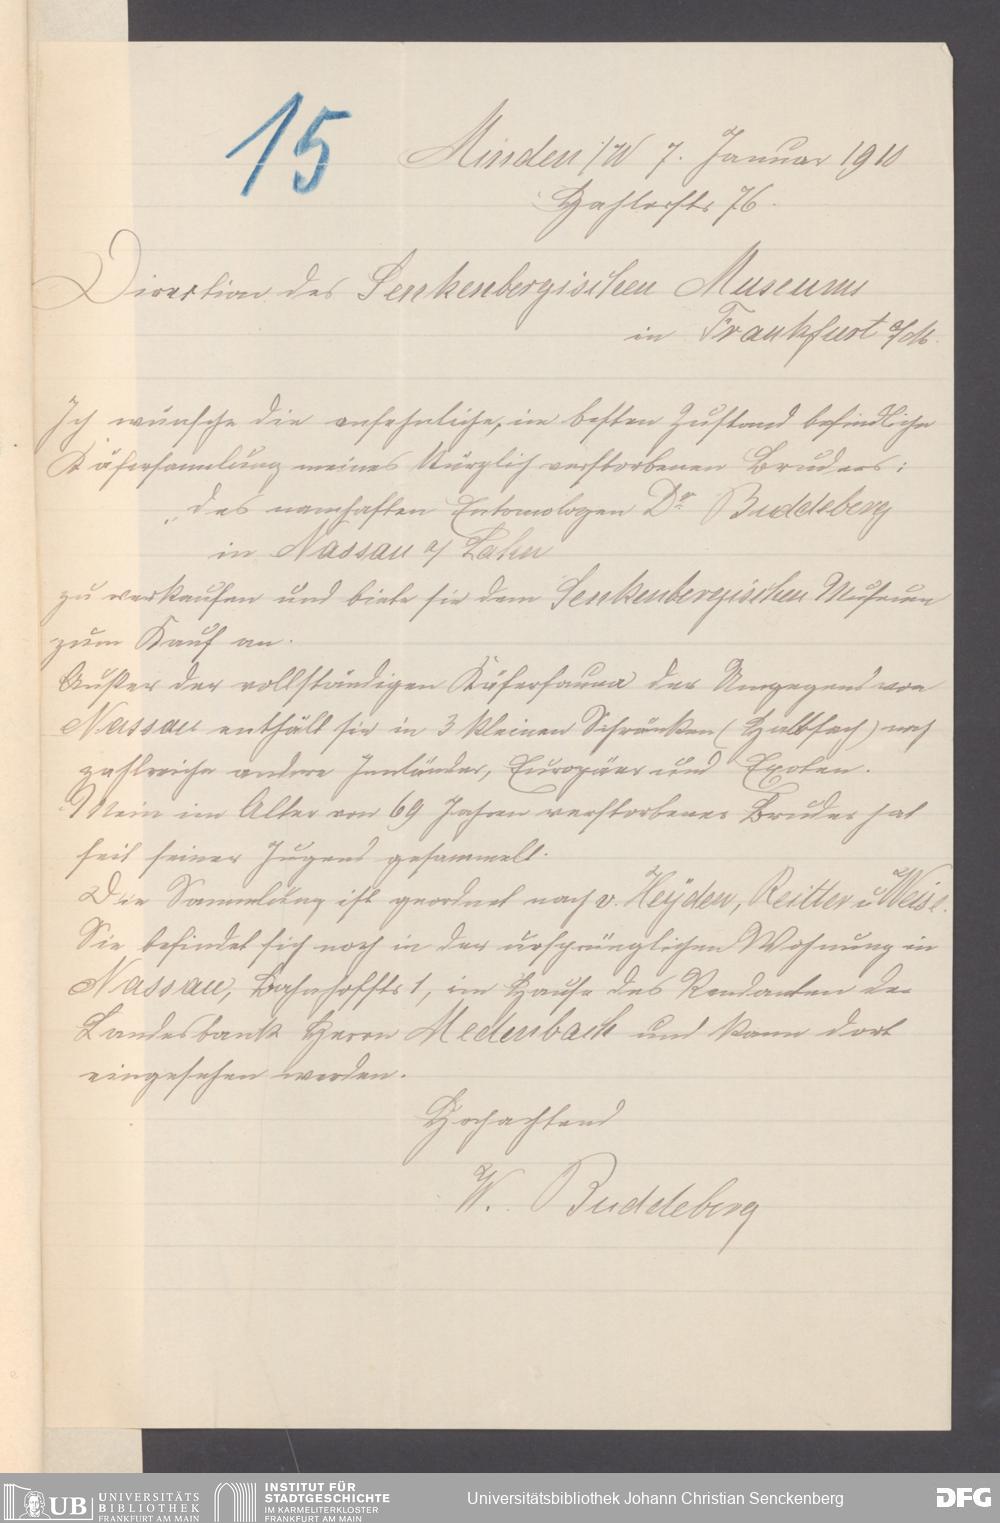 15
Minden i/W 7. Januar 1910
Hahlerstr 76.
Direktion des Senkenbergischen Museums
in Frankfurt a/M.
Ich wünsche die ansehnliche, im besten Zustand befindliche
Käfersammlung meines kürzlich verstorbenen Bruders:
des namhaften Entomologen Dr. Buddeberg
in Nassau a/ Lahn
zu verkaufen und biete sie dem Senkenbergischen Museum
zum Kauf an.
Außer der vollständigen Käferfauna der Umgegend von
Nassau enthält sie in 3 kleinen Schränken ( ) noch
zahlreiche andere Innländer, Europäer und Exoten.
Mein im Alter von 69 Jahren verstorbener Bruder hat
seit seiner Jugend gesammelt.
Die Sammlung ist geordnet nach v. Heyden, Reitter u Weise.
Sie befindet sich noch in der ursprünglichen Wohnung in
Nassau, Bahnhofstr 1, im Hause des Rendanten der
Landesbank Herrn Medenbach und kann dort
eingesehen werden.
Hochachtend
W. Buddeberg
UB UNIVERSITÄTS
BIBLIOTHEK
FRANKFURT AM MAIN
INSTITUT FÜR
STADTGESCHICHTE
IM KARMELITERKLOSTER
FRANKFURT AM MAIN
Universitätsbibliothek Johann Christian Senckenberg
DFG